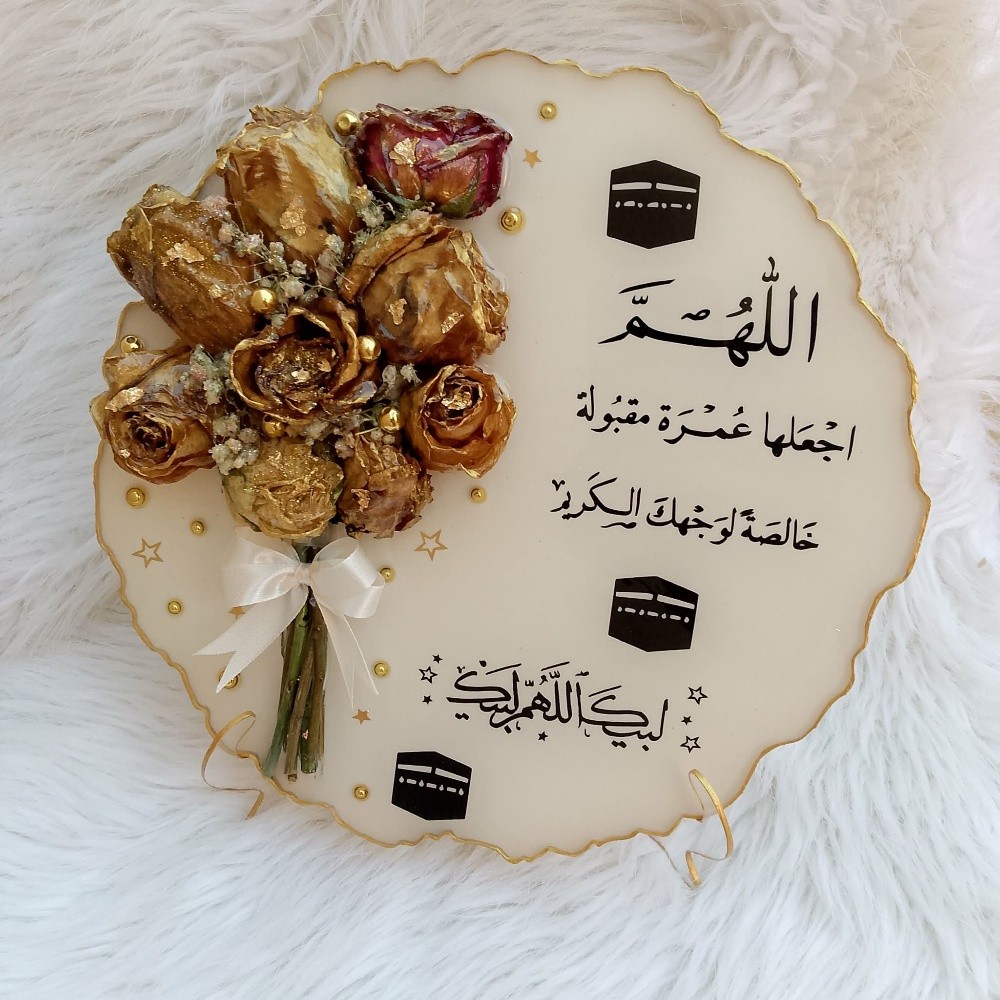 اللّٰهُمَّ
اجْعَلها عُمْرَة مقبُولة
خَالصَةً لوَجْهكَ الكَريم
لبيكَ اللَّهُمّ لبيَكْ